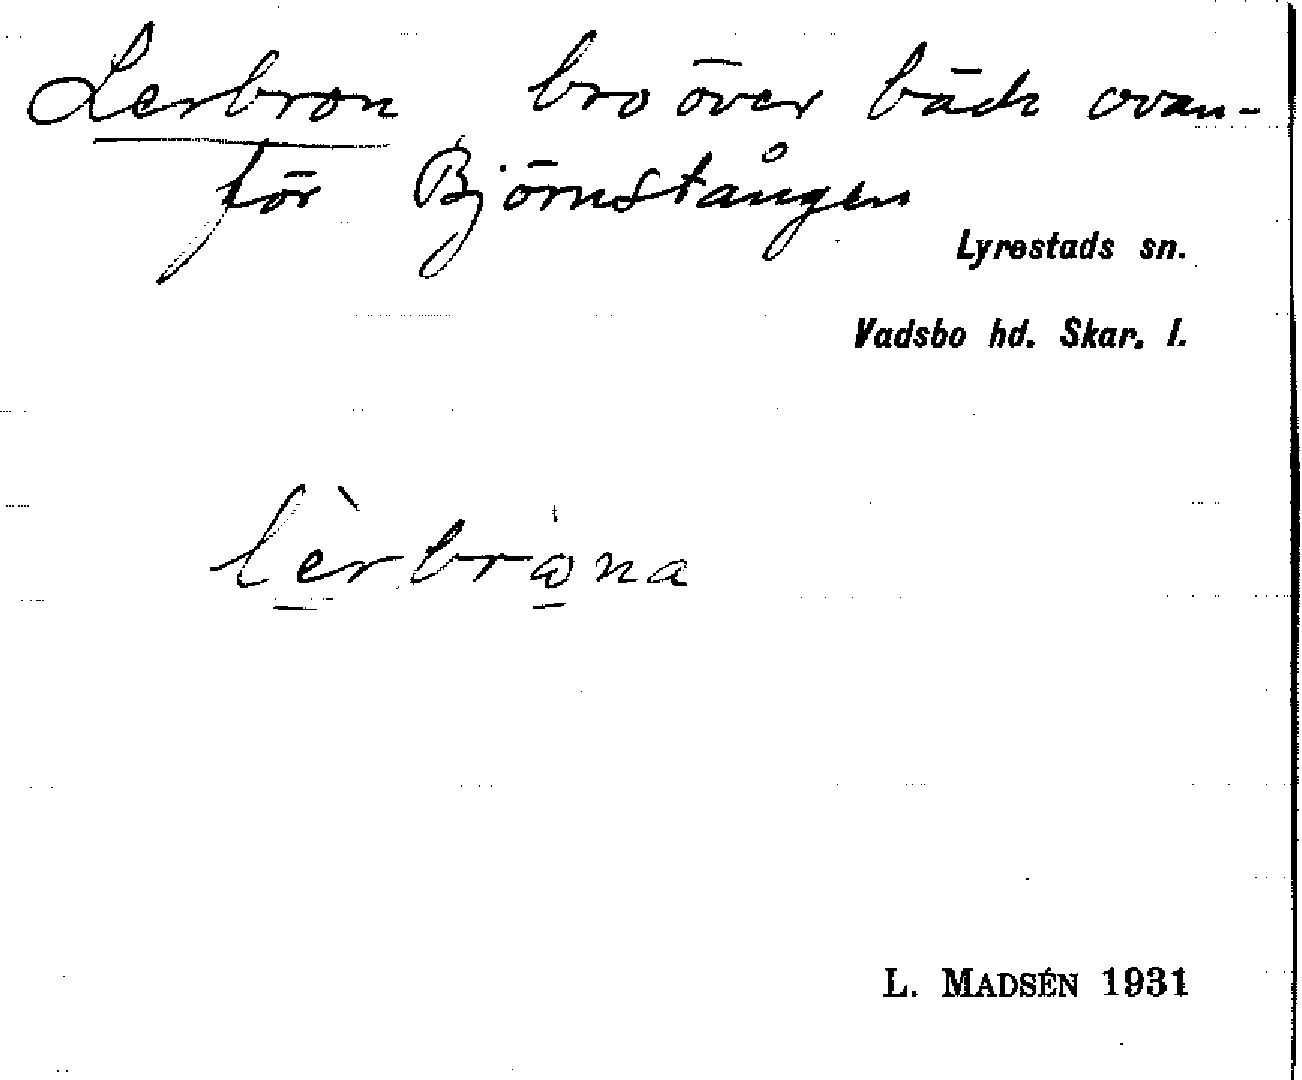 Lerbron bro över bäck ovan-
för Björnstången
Lyrestads sn.
Vadsbo hd. Skar. l.
lèrbrωna
L. MADSÉN 1931